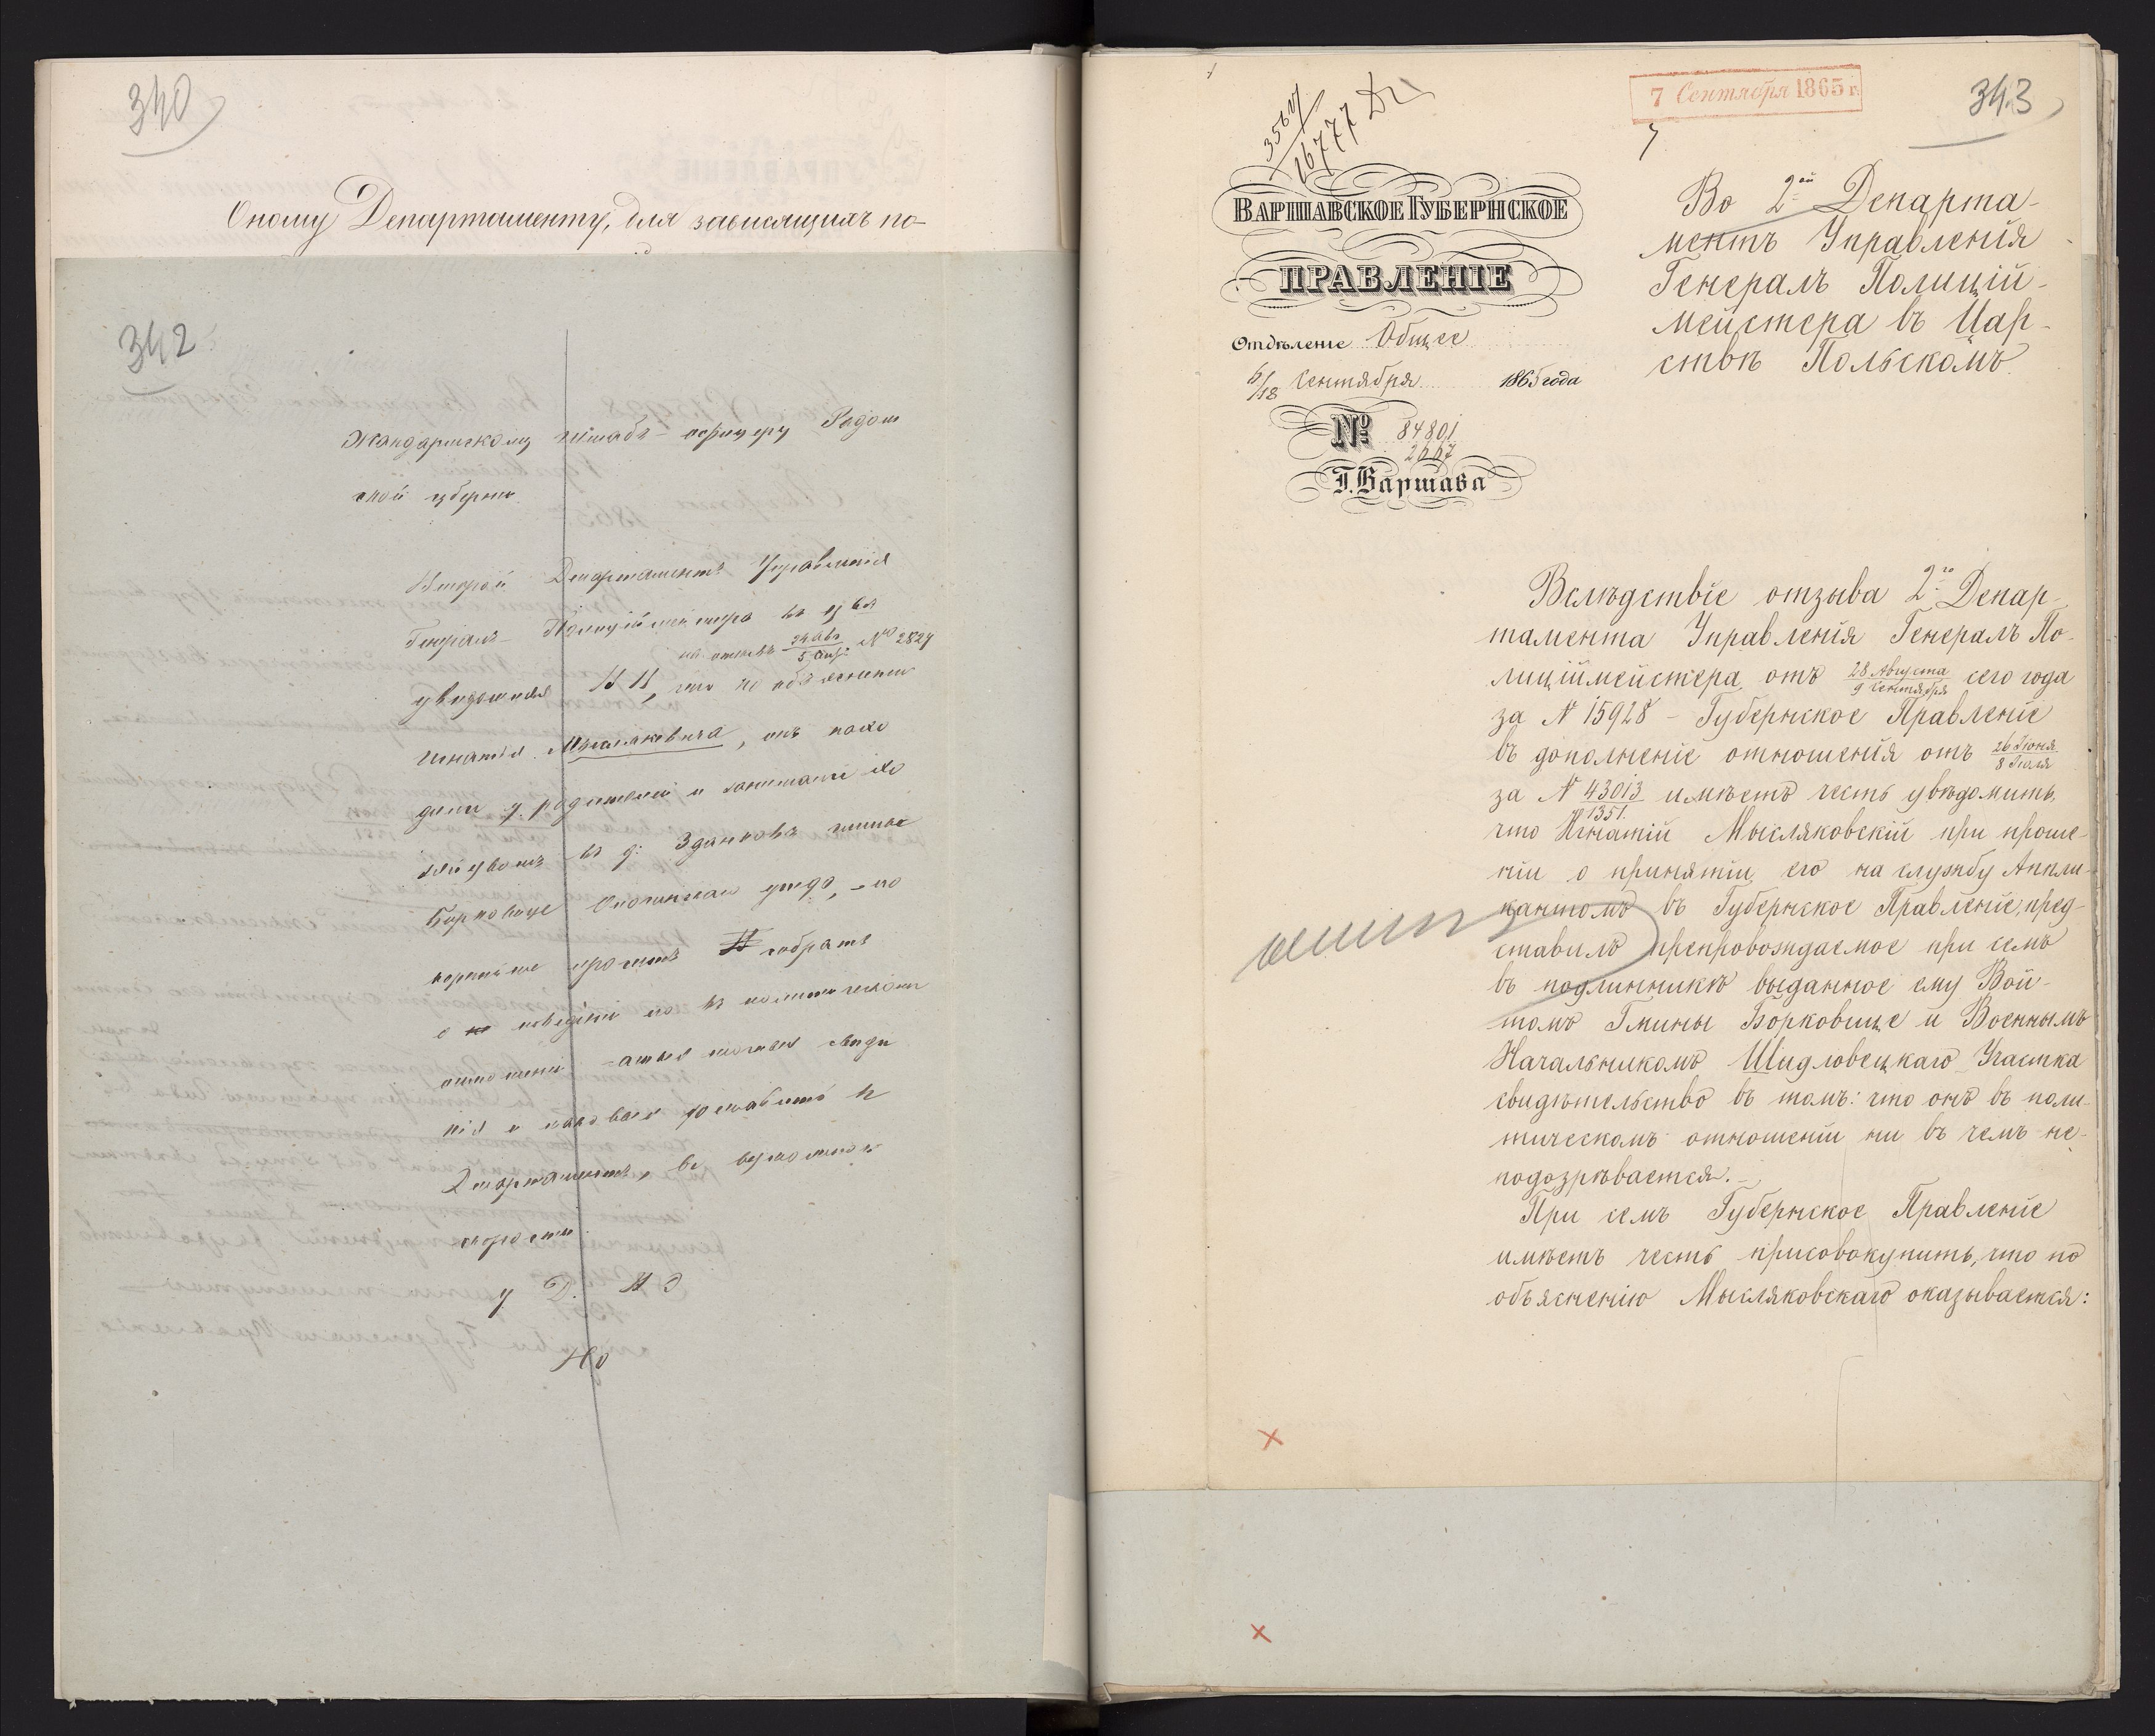 340
Оному Департаменту, для зависящихъ по-
342
Жандармскому штабъ-офицеру Радом
ской губерніи
Второй Департаментъ Управленія
Генералъ-Полиціймейстера въ Ц
на отзывъ 24 Авг / 5 № 2824
увѣдомляя , что по объясненію
Игнатія Мысляковича, онъ нахо
дит у родителей и занимался хо
зяйствомъ въ д: Зданкова гмины
Борковице Опочинскаго уезда,
просить собрать
о поведеніи его въ политическомъ
отношеніи
нія и таковыя доставить въ
Департаментъ, въ возможной
скорости
У Д. Н Э
Но
343
7 Сентября 1865 г.
35617 / 16777
ВАРШАВСКОЕ ГУБЕРНСКОЕ
ПРАВЛЕНІЕ
Отдѣленіе Общее
6/18 Сентября 1865 года
№ 84801 / 2667
Г. Варшава
Во 2ой Департа-
ментъ Управленія
Генералъ Полицій-
мейстера въ Цар-
ствѣ Польскомъ.
Вслѣдствіе отзыва 2го Депар-
тамента Управленія Генералъ По-
лиціймейстера отъ 28 Августа / 9 Сентября сего года
за N 15928 - Губернское Правленіе
въ дополненіе отношенія отъ 26 Іюня / 8 Іюля
за N 43013 / 1351 имѣетъ честь увѣдомить,
что Игнатій Мысляковскій при проше-
ніи о принятіи его на службу Аппли-
кантомъ въ Губернское Правленіе, пред-
ставилъ препровождаемое при семъ
въ подлинникѣ выданное ему Вой-
томъ Гмины Борковице и Военнымъ
Начальникомъ Шидловецкаго Участка
свидѣтельство въ томъ: что онъ въ поли-
тическомъ отношеніи ни въ чемъ не-
подозрѣвается.-
При семъ Губернское Правленіе
имѣетъ честь присовокупить, что по
объясненію Мысляковскаго оказывается: